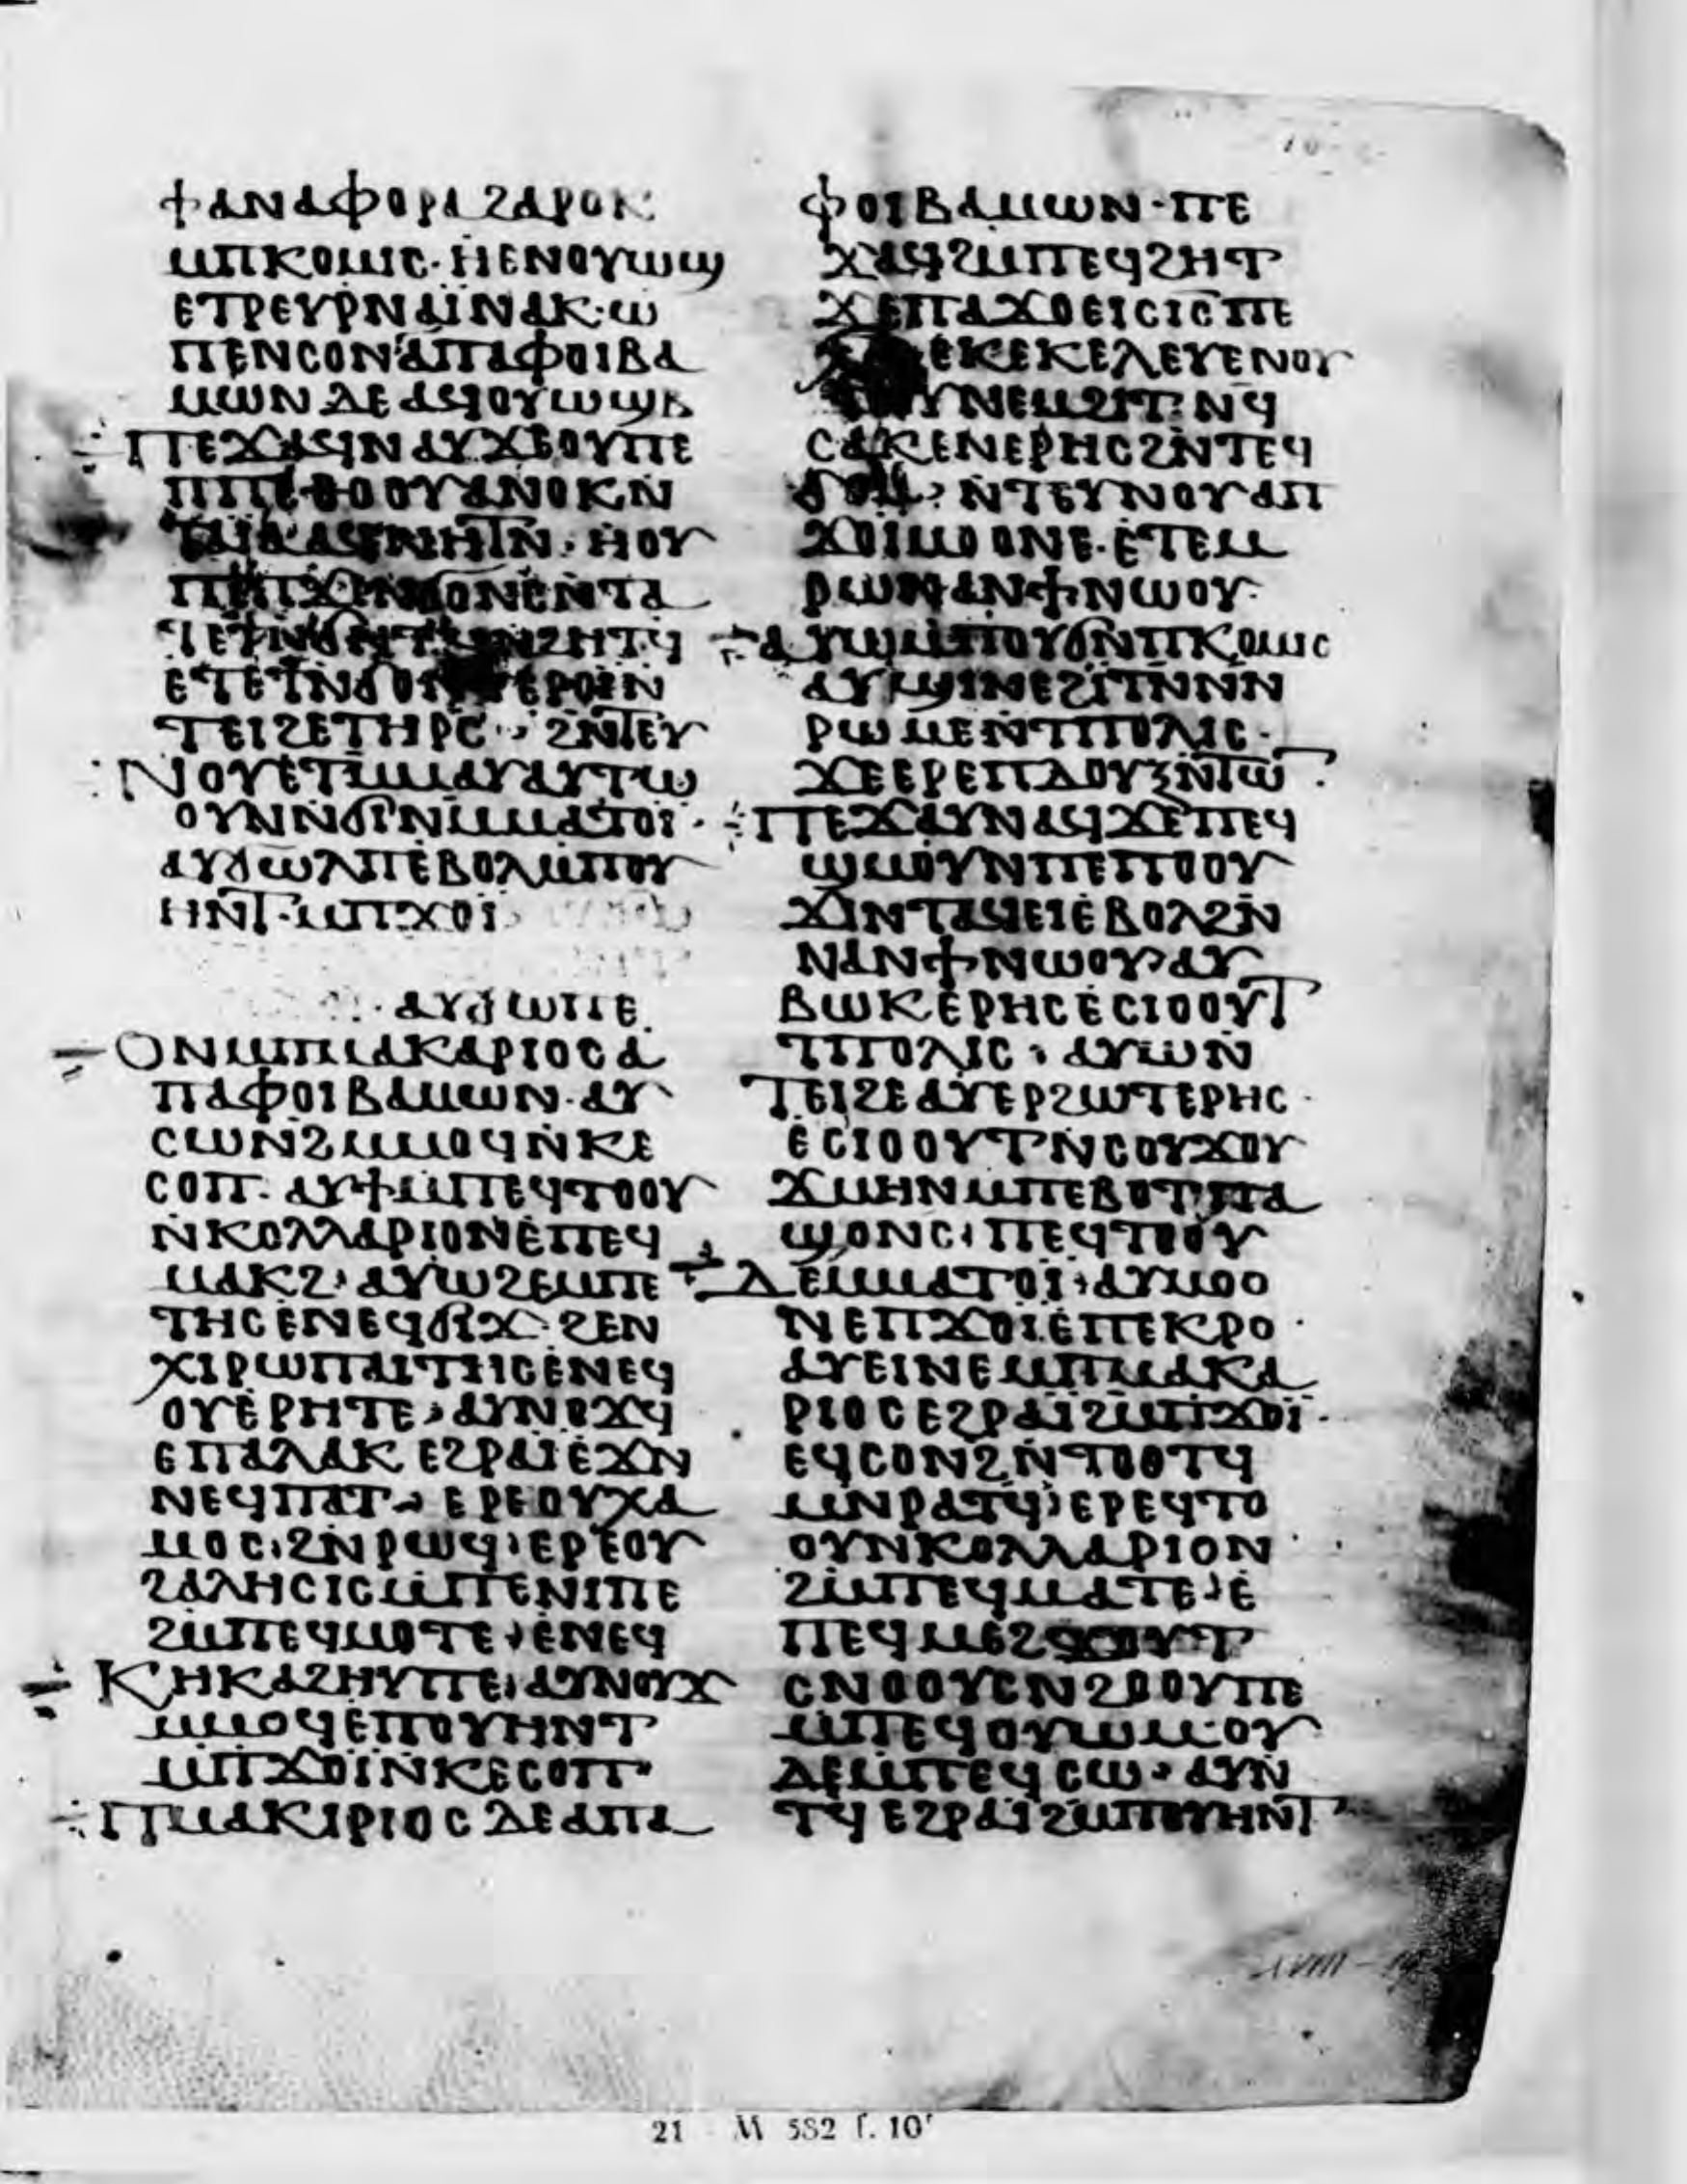 ϯⲁⲛⲁⲫⲟⲣⲁ ϩⲁⲣⲟⲕ
ⲙⲡⲕⲟⲙⲓⲥ· ⲏⲉⲛⲟⲩⲱϣ
ⲉⲧⲣⲉⲩⲣⲛⲁⲓⲛⲁⲕ· ⲱ
ⲡⲉⲛⲥⲟⲛ ⲁⲡⲁⲫⲟⲓⲃⲁ
ⲙⲱⲛ ⲇⲉ ⲁϥⲟⲩⲱϣⲃ
ⲡⲉϫⲁϥⲛⲁⲩϫⲉⲟⲩⲡⲉ
ⲑⲟⲟⲩ ⲁⲛⲟⲕ ⲛ
ⲏⲟⲩ
ⲛⲧⲁ
ⲛϩⲏⲧϥ
ⲉⲣⲟⲉⲓⲛ
ⲧⲉⲓϩⲉⲧⲏⲣⲥ· ϩⲛⲧⲉⲩ
ⲛⲟⲩⲉⲧⲙⲙⲁⲩⲁⲩⲧⲱ
ⲟⲩⲛⲛϭⲓⲛⲙⲙⲁⲧⲟⲓ·
ⲁⲩϭⲱⲗⲡⲉⲃⲟⲗⲙⲡⲟⲩ
ⲏⲛⲧ· ⲙⲡϫⲟⲓ
ⲁⲩϭⲱⲡⲉ
ⲟⲛⲙⲡⲙⲁⲕⲁⲣⲓⲟⲥ ⲁ
ⲡⲁⲫⲟⲓⲃⲁⲙⲱⲛ· ⲁⲩ
ⲥⲱⲛϩ ⲙⲙⲟϥⲛⲕⲉ
ⲥⲟⲡ· ⲁⲩϯⲙⲡⲉϥⲧⲟⲟⲩ
ⲛⲕⲟⲗⲗⲁⲣⲓⲟⲛⲉⲡⲉϥ
ⲙⲁⲕϩ· ⲁⲩⲱϩⲉⲙⲡⲉ
ⲧⲏⲥⲉⲛⲉϥϭⲓϫ· ϩⲉⲛ
ⲭⲓⲣⲱⲡⲁⲓⲧⲏⲥⲉⲛⲉϥ
ⲟⲩⲉⲣⲏⲧⲉ· ⲁⲩⲛⲟϫϥ
ⲉⲡⲁⲗⲁⲕ ⲉϩⲣⲁⲓⲉϫⲛ
ⲛⲉϥⲡⲁⲧ· ⲉⲣⲉⲟⲩⲭⲁ
ⲙⲟⲥ· ϩⲛⲣⲱϥ· ⲉⲣⲉⲟⲩ
ϩⲁⲗⲏⲥⲓⲥⲙⲡⲉⲛⲓⲡⲉ
ϩⲙⲡⲉϥⲙⲟⲧⲉ· ⲉⲛⲉϥ
ⲕⲏⲕⲁϩⲏⲩⲡⲉ· ⲁⲩⲛⲟⲩϫ
ⲙⲙⲟϥⲉⲡⲟⲩⲏⲛⲧ
ⲙⲡϫⲟⲓⲛⲕⲉⲥⲟⲡ·
ⲡⲙⲁⲕⲁⲣⲓⲟⲥ ⲇⲉ ⲁⲡⲁ
ⲫⲟⲓⲃⲁⲙⲱⲛ· ⲡⲉ
ϫⲁϥϩⲙⲡⲉϥϩⲏⲧ
ϫⲉⲡⲁϫⲟⲉⲓⲥⲓⲥ ⲡⲉ
ⲉⲕⲉⲕⲉⲗⲉⲩⲉⲛⲟⲩ
ⲛϥ
ⲥⲁⲕⲉⲛⲉⲣⲏⲥϩⲛⲧⲉϥ
ⲛⲧⲉⲩⲛⲟⲩⲁⲡ
ϫⲟⲓⲙⲟⲟⲛⲉ· ⲉⲧⲉⲙ
ⲣⲱⲛⲁⲛϯⲛⲱⲟⲩ·
ⲁⲩⲱⲙⲡⲟⲩϭⲛⲡⲕⲟⲙⲓⲥ
ⲁⲩϣⲓⲛⲉϩⲓⲧⲛⲛⲛ
ⲣⲱⲙⲉⲛⲧⲡⲟⲗⲓⲥ·
ϫⲉⲉⲣⲉⲡⲁⲟⲩϩⲛⲧⲱ
ⲡⲉϫⲁⲩⲛⲁϥϫⲉⲡⲉϥ
ϣⲙⲟⲩⲛⲡⲉⲡⲟⲟⲩ
ϫⲓⲛⲧⲁϥⲉⲓⲉⲃⲟⲗϩⲛ
ⲛⲁⲛϯⲛⲱⲟⲩ· ⲁⲩ
ⲃⲱⲕⲉⲣⲏⲥⲉⲥⲓⲟⲟⲩⲧ
ⲧⲡⲟⲗⲓⲥ· ⲁⲩⲱⲛ
ⲧⲉⲓϩⲉⲁⲩⲉⲣϩⲱⲧⲉⲣⲏⲥ·
ⲉⲥⲓⲟⲟⲩⲧⲛⲥⲟⲩϫⲟⲩ
ϫⲙⲏⲛⲙⲡⲉⲃⲟⲧⲡⲁ
ϣⲟⲛⲥ· ⲡⲉϥⲧⲟⲟⲩ
ⲇⲉⲙⲙⲁⲧⲟⲓ· ⲁⲩⲙⲟⲟ
ⲛⲉⲡϫⲟⲓⲉⲡⲉⲕⲣⲟ·
ⲁⲩⲉⲓⲛⲉⲙⲡⲙⲁⲕⲁ
ⲣⲓⲟⲥⲉϩⲣⲁⲓϩⲙⲡϫⲟⲓ·
ⲉϥⲥⲟⲛϩⲛⲧⲟⲟⲧϥ
ⲙⲛⲣⲁⲧϥ· ⲉⲣⲉϥⲧⲟ
ⲟⲩⲛⲕⲟⲗⲗⲁⲣⲓⲟⲛ
ϩⲙⲡⲉϥⲙⲁⲧⲉ· ⲉ
ⲡⲉϥⲙⲉϩ
ⲥⲛⲟⲟⲩⲥⲛϩⲟⲟⲩⲡⲉ
ⲙⲡⲉϥⲟⲩⲱⲙ· ⲟⲩ
ⲇⲉⲙⲡⲉϥⲥⲱ· ⲁⲩⲛ
ⲧϥⲉϩⲣⲁⲓϩⲙⲡⲟⲩⲏⲛⲧ
XVIII - 19
21 M 582 f. 10r